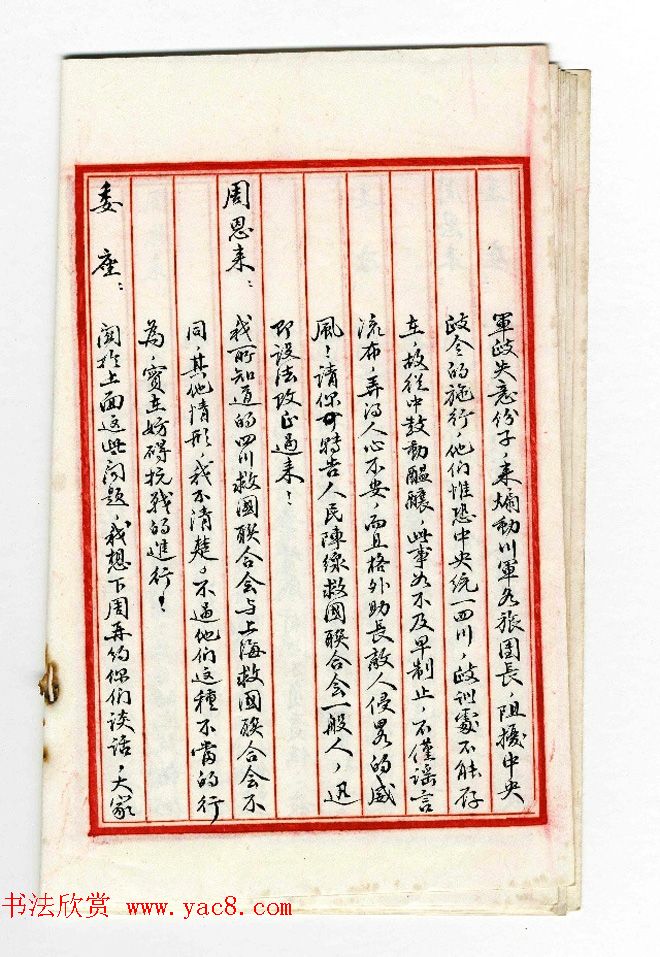 軍政失意份子，来煽動川軍各旅團長，阻擾中央
政令的施行，他们惟恐中央统一四川，政训處不能存
在，故從中鼓動醞釀，此事如不及早制止，不僅谣言
流布，弄得人心不安，而且格外助長敵人侵畧的威
風！請你可特告人民陣線救國聯合会一般人，迅
即设法改正過来！
周恩来：我所知道的四川救國聯合会与上海救國聯合会不
同，其他情形，我不清楚。不過他们这種不當的行
為，實在妨碍抗战的進行！
委座：関於上面这些问题，我想下周再约你们谈话，大家
书法欣赏 www.yac8.com